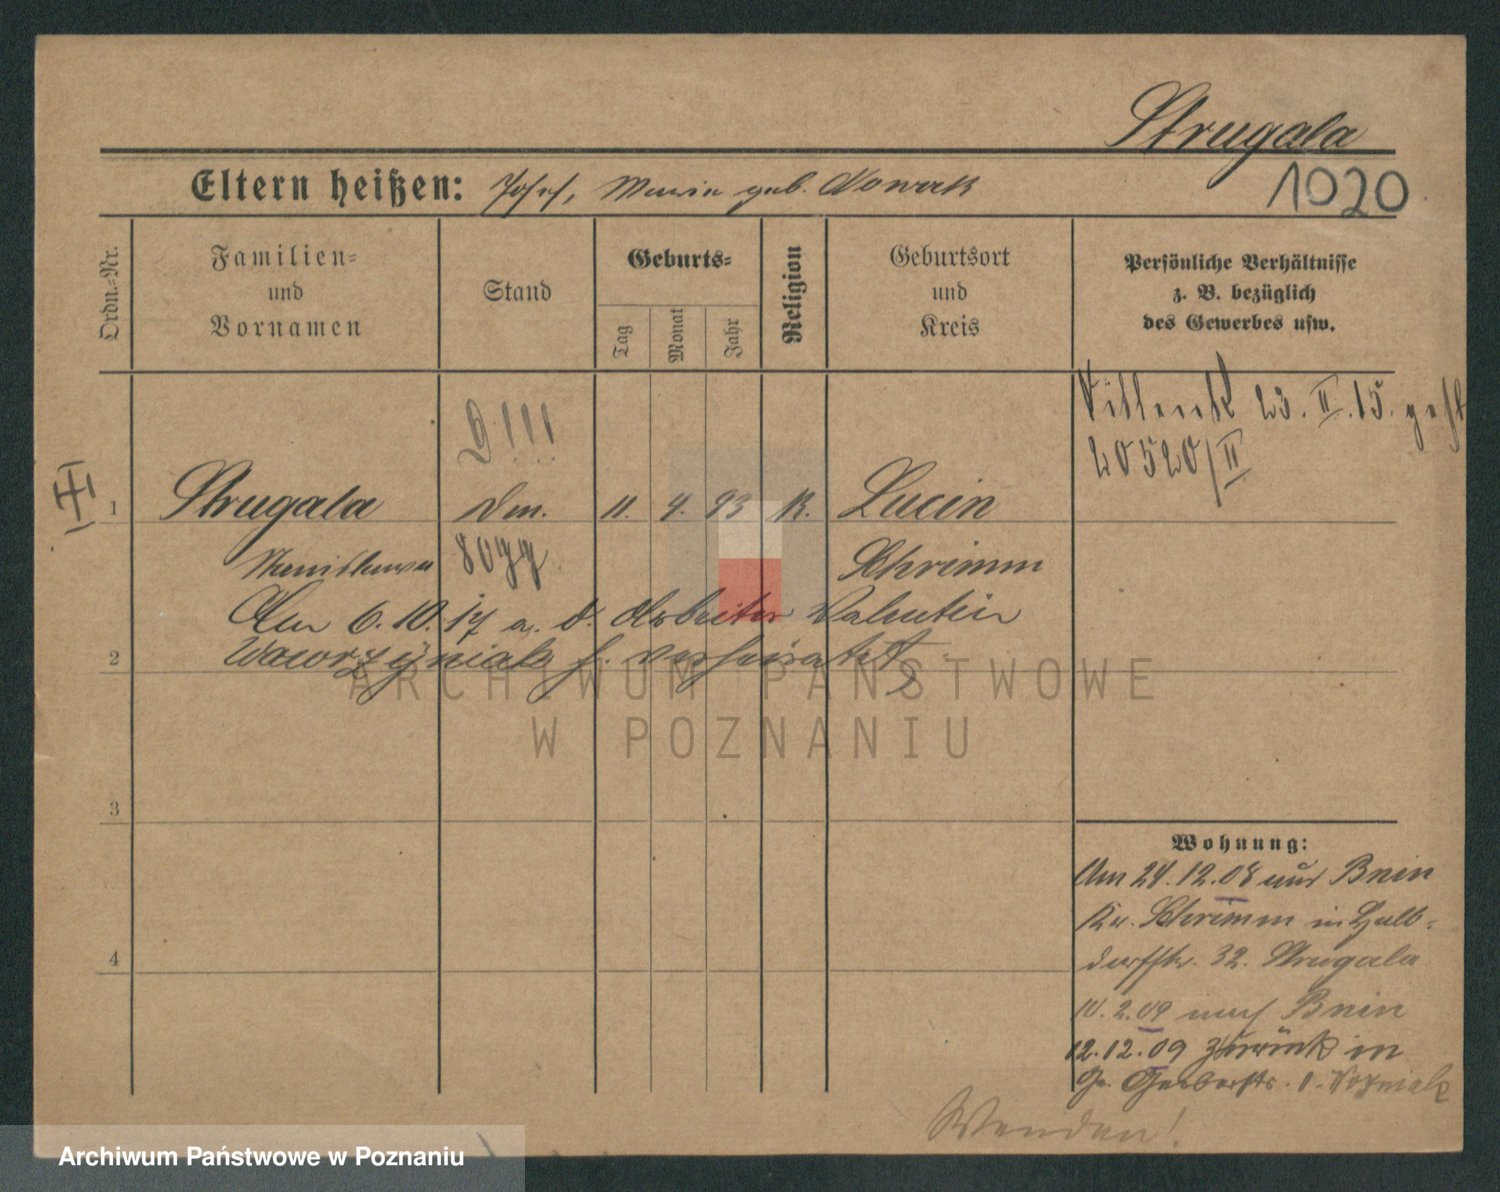 Strugala
Eltern heißen: Josef, Maria geb. Nowak
1020
Ordn.-Nr.
Familien-
und
Vornamen
Stand
Geburts-
Tag
Monat
Jahr
Religion
Geburtsort
und
Kreis
Persönliche Verhältnisse
z. B. bezüglich
des Gewerbes usw.
23. II. 15.
20520/II
1 Strugala 11. 4. 93 K. Lucin
Stanislawa Schrimm
Am 6.10.17 a. d. Arbeiter Valentin
2 Wawrzyniak h. verheiratet
3
4
Wohnung:
Am 24.12.08 aus Bnin
Kr. Schrimm in Halb-
dorfstr. 32. Strugala
10.2.09 nach Bnin
12.12.09 zurück in
Gr. Gerberstr. Wozniak
Wenden!
ARCHIWUM PAŃSTWOWE
W POZNANIU
Archiwum Państwowe w Poznaniu